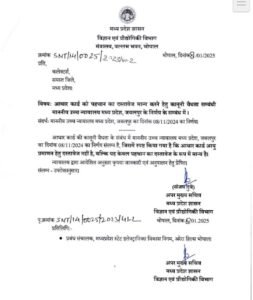 मध्य प्रदेश शासन
विज्ञान एवं प्रौद्योगिकी विभाग
मंत्रालय, वल्लभ भवन, भोपाल
क्रमांक SNT/14/0025/2023 भोपाल, दिनांक /01/2025
प्रति,
कलेक्टर्स,
समस्त जिले,
मध्य प्रदेश।
विषय: आधार कार्ड को पहचान का दस्तावेज मान्य करने हेतु कानूनी वैधता सम्बंधी
माननीय उच्च न्यायालय मध्य प्रदेश, जबलपुर के निर्णय के सम्बंध में।
संदर्भ: माननीय उच्च न्यायालय मध्य प्रदेश, जबलपुर का दिनांक 08/11/2024 का निर्णय।
आधार कार्ड की कानूनी वैधता के संबंध में माननीय उच्च न्यायालय मध्य प्रदेश, जबलपुर
का दिनांक 08/11/2024 का निर्णय संलग्न है, जिसमें स्पष्ट किया गया है कि आधार कार्ड आयु
प्रमाणन हेतु दस्तावेज नहीं है, बल्कि यह केवल पहचान का दस्तावेज के रूप में मान्य है।
न्यायालय द्वारा आदेशित अनुसार कृपया जानकारी एवं अनुपालन हेतु प्रेषित।
संलग्न - उपरोक्तानुसार।
(संजय दुबे)
अपर मुख्य सचिव
मध्यप्रदेश शासन
विज्ञान एवं प्रौद्योगिकी विभाग
पृ.क्रमांक SNT/14/0025/2023 भोपाल, दिनांक /01/2025
प्रतिलिपि:
• प्रबंध संचालक, मध्यप्रदेश स्टेट इलेक्ट्रॉनिक्स विकास निगम, अरेरा हिल्स भोपाल।
अपर मुख्य सचिव
मध्यप्रदेश शासन
विज्ञान एवं प्रौद्योगिकी विभाग